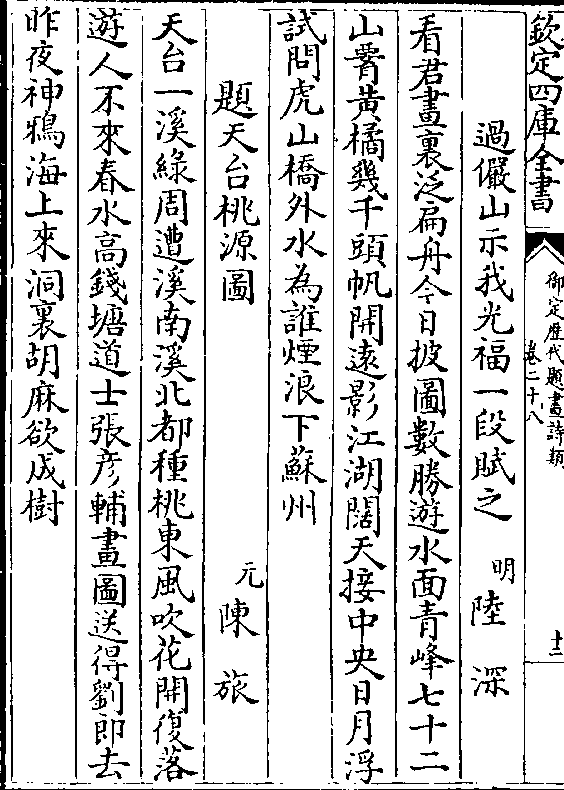 欽定四庫全書
御定歷代題畫詩類
卷二十八
十二
過儼山示我光福一段賦之 明 陸深
看君畫裏泛扁舟今日披圖數勝遊水面青峰七十二
山霄黃橘幾千頭帆開遠影江湖闊天接中央日月浮
試問虎山橋外水為誰煙浪下蘇州
題天台桃源圖 元 陳旅
天台一溪綠周遭溪南溪北都種桃東風吹花開復落
遊人不來春水高錢塘道士張彥輔畫圖送得劉郎去
昨夜神鴉海上來洞裏胡麻欲成樹